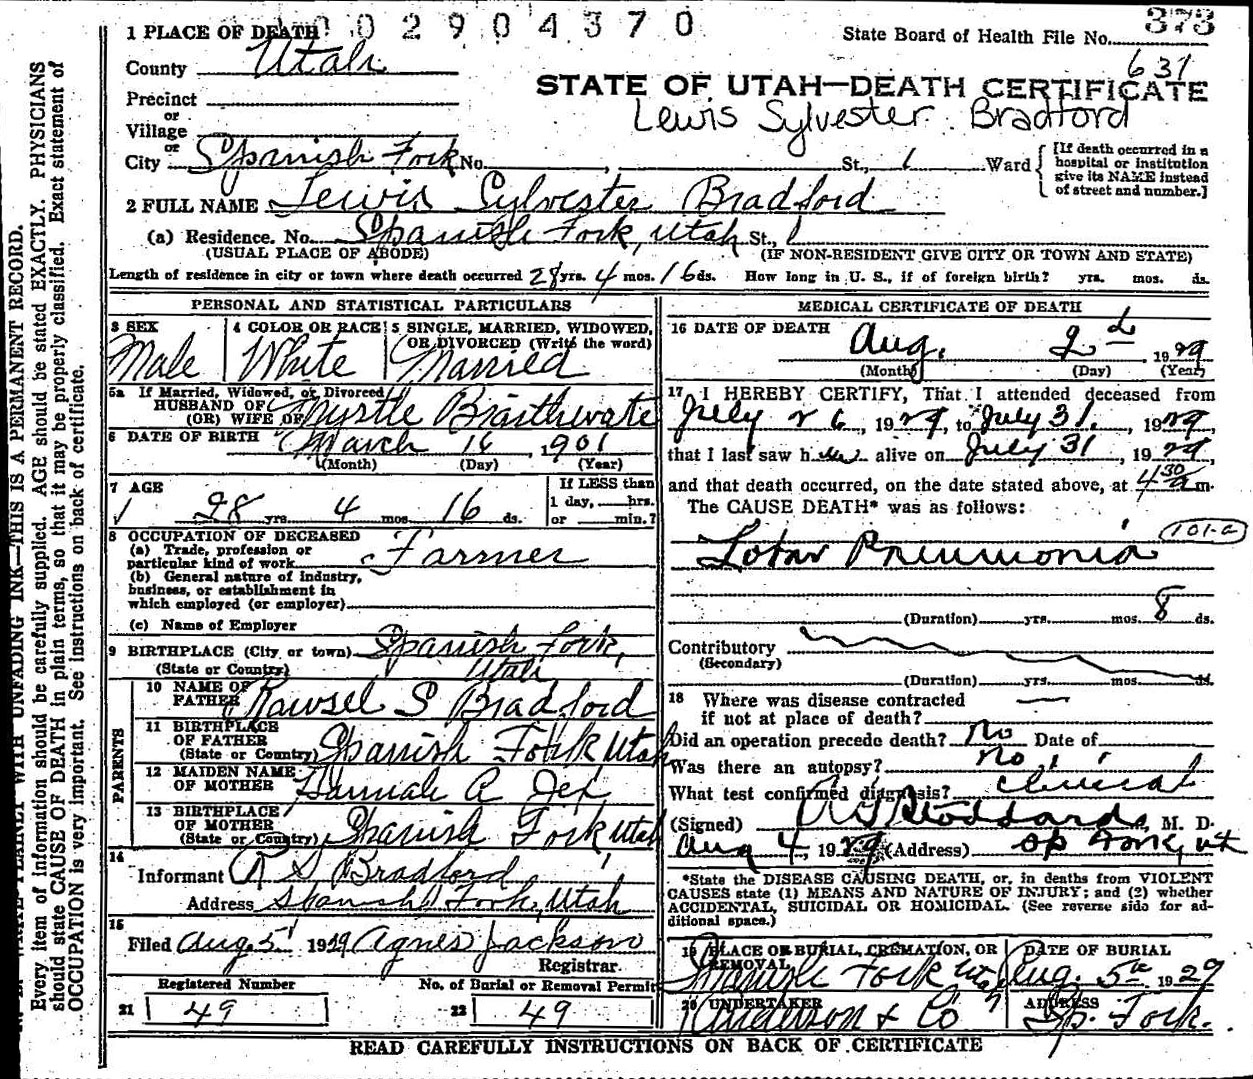 002904370
373
1 PLACE OF DEATH
State Board of Health File No.
631
County Utah
STATE OF UTAH—DEATH CERTIFICATE
Precinct
or
Village
Lewis Sylvester Bradford
or
City Spanish Fork No. , St., 1 Ward
[If death occurred in a
hospital or institution
give its NAME instead
of street and number.]
2 FULL NAME Lewis Sylvester Bradford
(a) Residence. No. Spanish Fork, Utah St.,
(USUAL PLACE OF ABODE) (IF NON-RESIDENT GIVE CITY OR TOWN AND STATE)
Length of residence in city or town where death occurred 28 yrs. 4 mos. 16 ds. How long in U. S., if of foreign birth? yrs. mos. ds.
PERSONAL AND STATISTICAL PARTICULARS
3 SEX
Male
4 COLOR OR RACE
White
5 SINGLE, MARRIED, WIDOWED,
OR DIVORCED (Write the word)
Married
5a If Married, Widowed, or Divorced
HUSBAND OF
(OR) WIFE OF Myrtle Braithwaite
6 DATE OF BIRTH March 16, 1901
(Month) (Day) (Year)
7 AGE
28 yrs. 4 mos. 16 ds.
If LESS than
1 day, hrs.
or min.?
8 OCCUPATION OF DECEASED
(a) Trade, profession or
particular kind of work Farmer
(b) General nature of industry,
business, or establishment in
which employed (or employer)
(c) Name of Employer
9 BIRTHPLACE (City or town) Spanish Fork,
(State or Country) Utah
PARENTS
10 NAME OF
FATHER Rawsel S Bradford
11 BIRTHPLACE
OF FATHER
(State or Country) Spanish Fork Utah
12 MAIDEN NAME
OF MOTHER Hannah A Jex
13 BIRTHPLACE
OF MOTHER
(State or Country) Spanish Fork Utah
14
Informant R S Bradford
Address Spanish Fork, Utah
15
Filed Aug 5 1929 Agnes Jackson
Registrar.
Registered Number
21 49
No. of Burial or Removal Permit
22 49
MEDICAL CERTIFICATE OF DEATH
16 DATE OF DEATH
Aug. 2d 1929
(Month) (Day) (Year)
17 I HEREBY CERTIFY, That I attended deceased from
July 26, 1929, to July 31, 1929,
that I last saw him alive on July 31, 1929,
and that death occurred, on the date stated above, at 4 30 a m.
The CAUSE DEATH* was as follows:
101-a
Lobar Pneumonia
(Duration) yrs. mos. 8 ds.
Contributory
(Secondary)
(Duration) yrs. mos. ds.
18 Where was disease contracted
if not at place of death?
Did an operation precede death? No Date of
Was there an autopsy? no
What test confirmed diagnosis? clinical
(Signed) Stoddard, M. D.
Aug 4, 1929 (Address) Sp Fork, Ut
*State the DISEASE CAUSING DEATH, or, in deaths from VIOLENT
CAUSES state (1) MEANS AND NATURE OF INJURY; and (2) whether
ACCIDENTAL, SUICIDAL OR HOMICIDAL. (See reverse side for ad-
ditional space.)
19 PLACE OR BURIAL, CREMATION, OR
REMOVAL
Spanish Fork Utah
DATE OF BURIAL
Aug. 5th 1929
20 UNDERTAKER
Anderson & Co
ADDRESS
Sp. Fork.
READ CAREFULLY INSTRUCTIONS ON BACK OF CERTIFICATE
WRITE PLAINLY WITH UNFADING INK—THIS IS A PERMANENT RECORD.
Every item of information should be carefully supplied. AGE should be stated EXACTLY. PHYSICIANS
should state CAUSE OF DEATH in plain terms, so that it may be properly classified. Exact statement of
OCCUPATION is very important. See instructions on back of certificate.